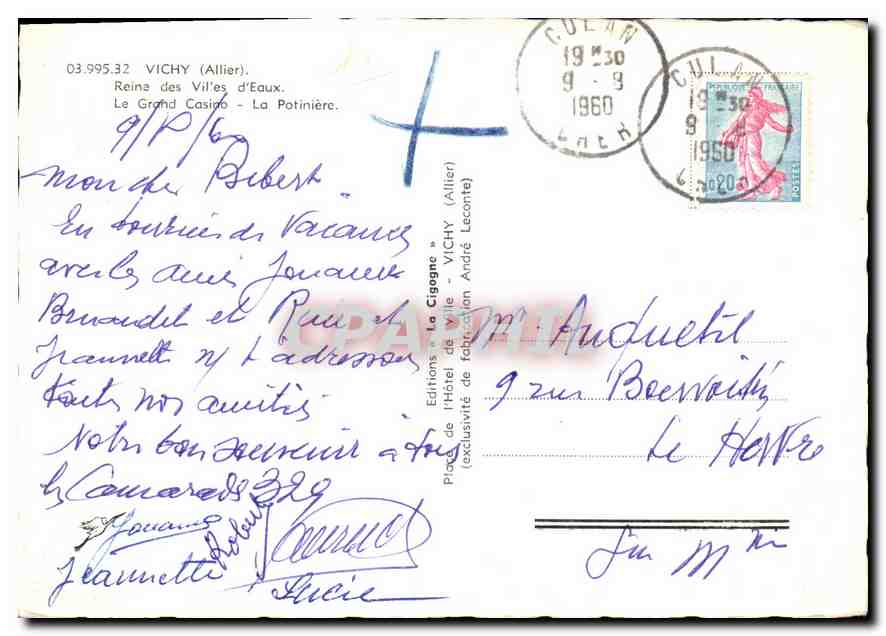 03.995.32 VICHY (Allier).
Reine des Villes d'Eaux.
Le Grand Casino - La Potinière.
Mon cher Bebert
En tournée de Vacances
avec les amis Jouanne
et
Jeannette n/ t'adressons
toutes nos amitiés
Notre bon souvenir à tous
les Camarades 329
Jouanne
Robert
Jeannette
Lucie
Editions « La Cigogne »
Place de l'Hôtel de Ville - VICHY (Allier)
(exclusivité de fabrication André Leconte)
CULAN
19 H 30
9 - 9
1960
CHER
CULAN
19 H 30
9 - 9
1960
REPUBLIQUE FRANÇAISE
0,20
POSTES
CPAPHIL
Mr Anquetil
9 rue
Le Havre